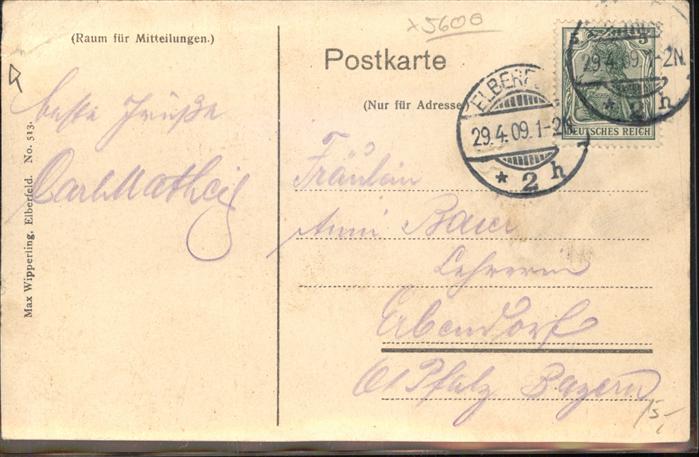 x5600
(Raum für Mitteilungen.)
Postkarte
(Nur für Adresse
ELBERF
29.4.09.1-2N.
* 2 h
29.4.09.1-2N.
* 2 h
5 5
DEUTSCHES REICH
beste Grüße
Carl Matheis
Max Wipperling, Elberfeld. No. 513.
Fräulein
Anni Baier
Lehrerin
Erbendorf
Ob Pfalz Bayern
15,-